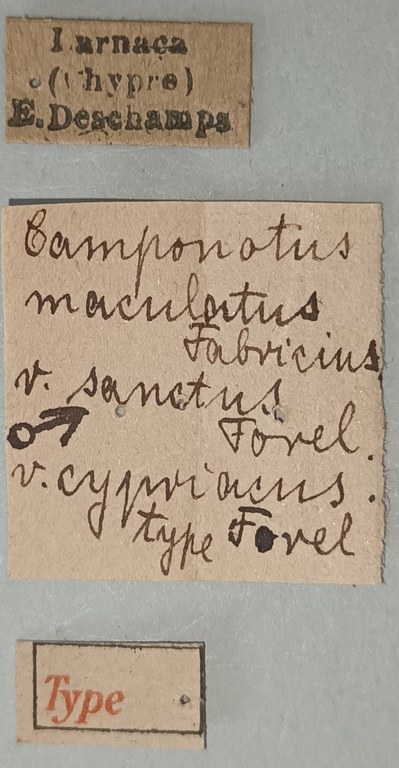 Larnaca
(Chypre)
E. Deschamps
Camponotus
maculatus
Fabricius
v. sanctus
♂ Forel.
v. cypriacus.
type Forel
Type